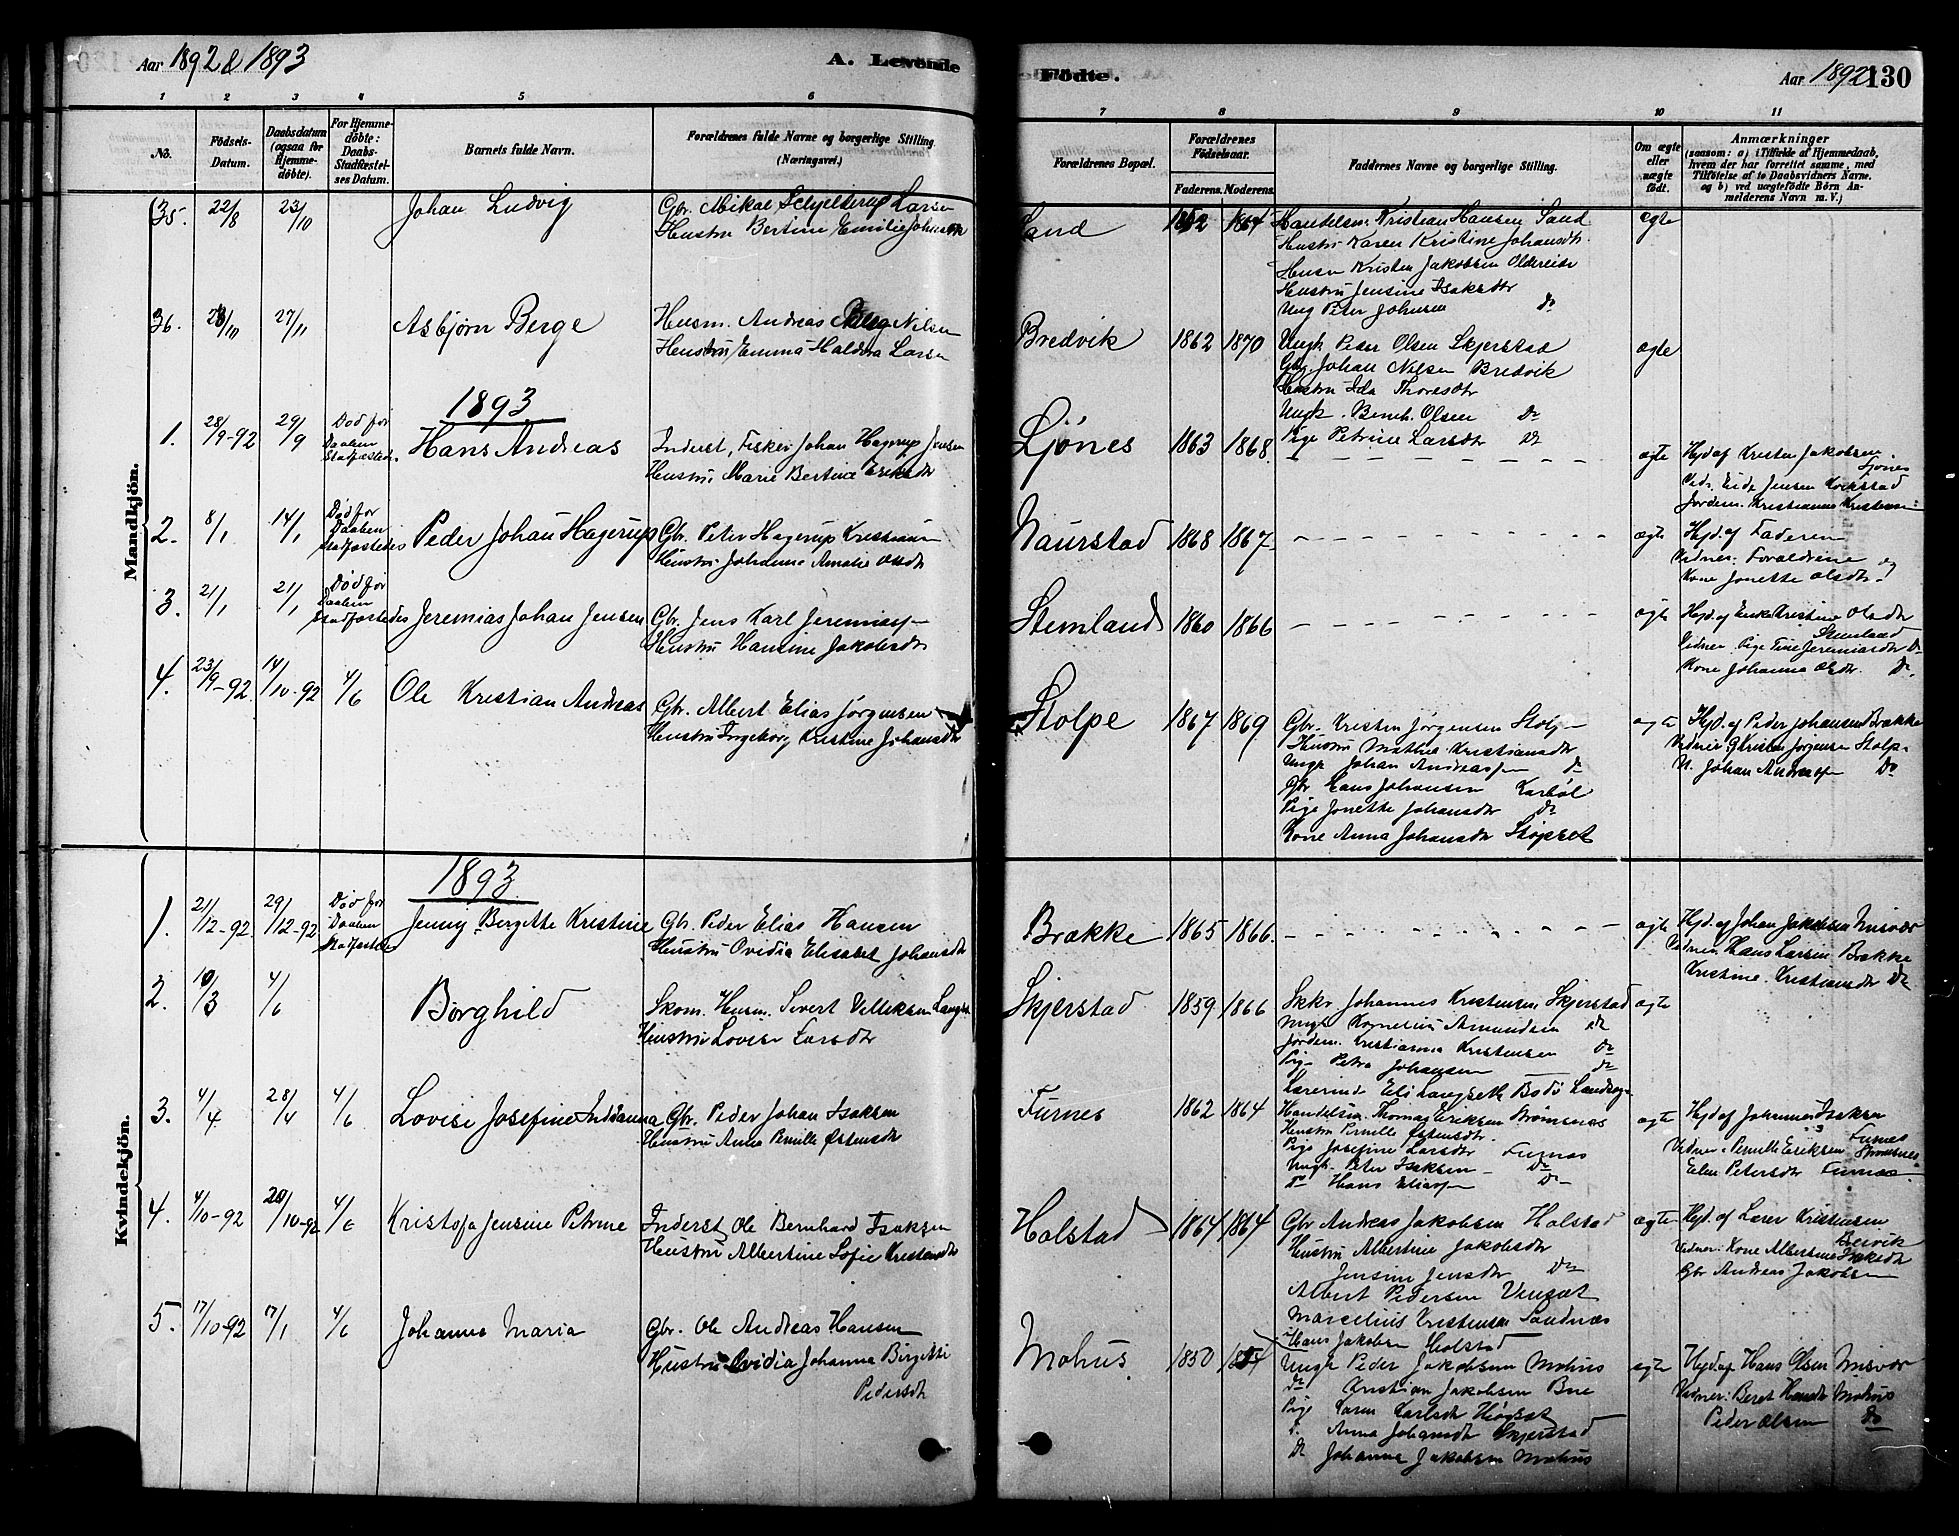 Aar 1892 & 1893
A. Levende
Fødte.
Aar 1892
130
1 2 3 4 5 6 7 8 9 10 11
No.
Fødsels-Datum.
Daabsdatum (ogsaa for Hjemme-døbte).
For Hjemme-døbte: Daabs-Stadfæstel-ses Datum.
Barnets fulde Navn.
Forældrenes fulde Navne og borgerlige Stilling.
(Næringsvei.)
Forældrenes Bopæl.
Forældrenes Fødselsaar.
Faderens. Moderens.
Faddernes Navne og borgerlige Stilling.
Om ægte eller uægte født.
Anmærkninger
(saasom: a) i Tilfælde af Hjemmedaab, hvem der har forrettet samme, med Tilføielse af to Daabsvidners Navne, og b) ved uægtefødte Børn An-melderens Navn m. V.)
Mandkjön.
35. 22/8 23/10 Johan Ludvig
Gbr. Mikal Schjelderup Larsen
Hustru Bertine Emilie Johnsen
Sand 1852 1864 Handelsm. Kristian Hansen Sand ægte
Hustru Karen Kristine Johansdtr.
Husm Kristen Jakobsen Oldereide
Hustru Jensine Isaksdtr
Ung Peter Johnsen Do
36. 23/10 27/11 Asbjørn Berge
Husm. Andreas Berg Nilsen
Hustru Emma Haldora Larsen
Bredvik 1862 1870 Ungk Peder Olsen Skjerstad ægte
Gbr. Johan Nilsen Bredvik
Hustru Ida Thoresdtr
Ungk. Bernh. Olsen Do
Pige Petrine Larsdtr Do
1893
1. 28/9-92 29/9 Død før Daaben stadfæstedes. Hans Andreas
Inderst, Fisker Johan Hagerup Jensen
Hustru Marie Bertine Eriksdtr
Ljønes 1863 1868 ægte
Hjd af Kristen Jakobsen
Ljønes
Jordem. Kristianna Kristensen
2. 8/1 14/1 Død før Daaben stadfæstedes Peder Johan Hagerup
Gbr. Peter Hagerup Kristiansen
Hustru Johanna Amalie Olsdtr
Naurstad 1868 1867 ægte
Hjd. af Faderen
Vidner. Forældrene og
Kone Jonette Olsdtr.
3. 21/1 21/1 Død før Daaben stadfæstedes Jeremias Johan Jensen
Gbr. Jens Karl Jeremiass.
Hustru Hansine Jakobsdtr
Stemland 1860 1866 ægte
Hjd. af Enke Kristine Olsdtr
Stemland
Vidner Pige Tine Jeremiasdtr Do
Kone Johanna Olsdtr. Do.
4. 23/9-92 14/10-92 4/6 Ole Kristian Andreas
Gbr. Albert Elias Jørgensen
Hustru Ingeborg Kristine Johansdtr
Stolpe 1867 1869 Gbr. Kristen Jørgensen Stolpe ægte
Hustru Mathea Kristiansdtr
Ungk Johan Andreassen Do
Gbr Hans Johansen Karbøl
Pige Jonette Johansdtr Do
Kone Anna Johansdtr Støpset
Hjd. af Peder Johansen Brække
Vidner Gbr Kristen Jørgensen Stolpe
U. Johan Andreassen Do
Kvindekjön.
1893
1. 21/12-92 29/12-92 Død før Daaben stadfæstedes Jenny Bergitte Kristine
Gbr. Peder Elias Hansen
Hustru Ovidia Elisabet Johansdtr
Brække 1865 1866 ægte
Hjd. af Johan Jakobsen Misvær
Vidner. Hans Larsen Brække
Kristine Kristiansdtr Do
2. 10/3 4/6 Borghild
Skom. Husm. Sivert Vellesen Langset
Hustru Lovise Larsdtr
Skjerstad 1859 1866 Skkr Johannes Kristensen Skjerstad ægte
Ungk Kornelius Amundsen Do
Jordem. Kristianna Kristensen Do
Pige Petra Johansen Do
Lærerinde Eli Langseth Bodø Landsogn
3. 4/4 28/4 4/6 Lovise Josefine Indianna
Gbr. Peder Johan Isaksen
Hustru Anna Pernille Østensdtr
Furnes 1862 1864 Handelsm. Thomas Eriksen Strømsnæs ægte
Hustru Pernille Østensdtr.
Pige Josefine Larsdtr Furnæs
Ungk. Peter Isaksen Do
Do Hans Eliassen Do
Hjd af Johannes Isaksen
Furnes
Vidner. Pernille Eriksen Strømsnes
Elen Petersdtr Furnæs
4. 4/10-92 20/10-92 4/6 Kristofa Jensine Petrine
Inderst Ole Bernhard Isaksen
Hustru Albertine Sofie Kristensdtr
Holstad 1864 1864 Gbr Andreas Jakobsen Holstad ægte
Hustru Albertine Jakobsdtr
Jensine Jensdtr Do
Albert Pedersen Vensæt
Marcelius Kristensen Sandnæs
Hans Jakobsen Holstad
Hjd. af Lærer Kristensen
Vidner: Kone Albertine Isaksdtr
Gbr Andreas Jakobsen
5. 17/10-92 17/1 4/6 Johanna Maria
Gbr. Ole Andreas Hansen
Hustru Ovidia Johanna Birgitte
Pedersdtr
Mohus 1850 1854 Ungk Peder Jakobsen Mohus ægte
Do Kristian Jakobsen Bue
Pige Karen Karlsdtr Høgset
P. Anna Johansdtr Skjerstad
Do Johanna Jakobsen Mohus
Hjd. af Hans Olsen Misvær
Vidner: Beret Hansdtr Mohus
Peder Olsen Do